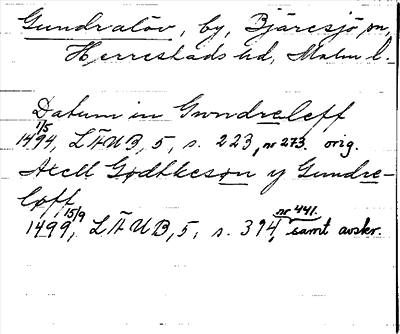 Gundralöv, by, Bjäresjö sn,
Herrestads hd, Malm. l.
Datum in Gwndreleff
1/5
1494, LÄUB, 5, s. 223, nr 273. orig.
Axell Godtkeson y Gundre-
løff,
15/9 nr 441.
1499, LÄUB, 5, s. 394, samt avskr.